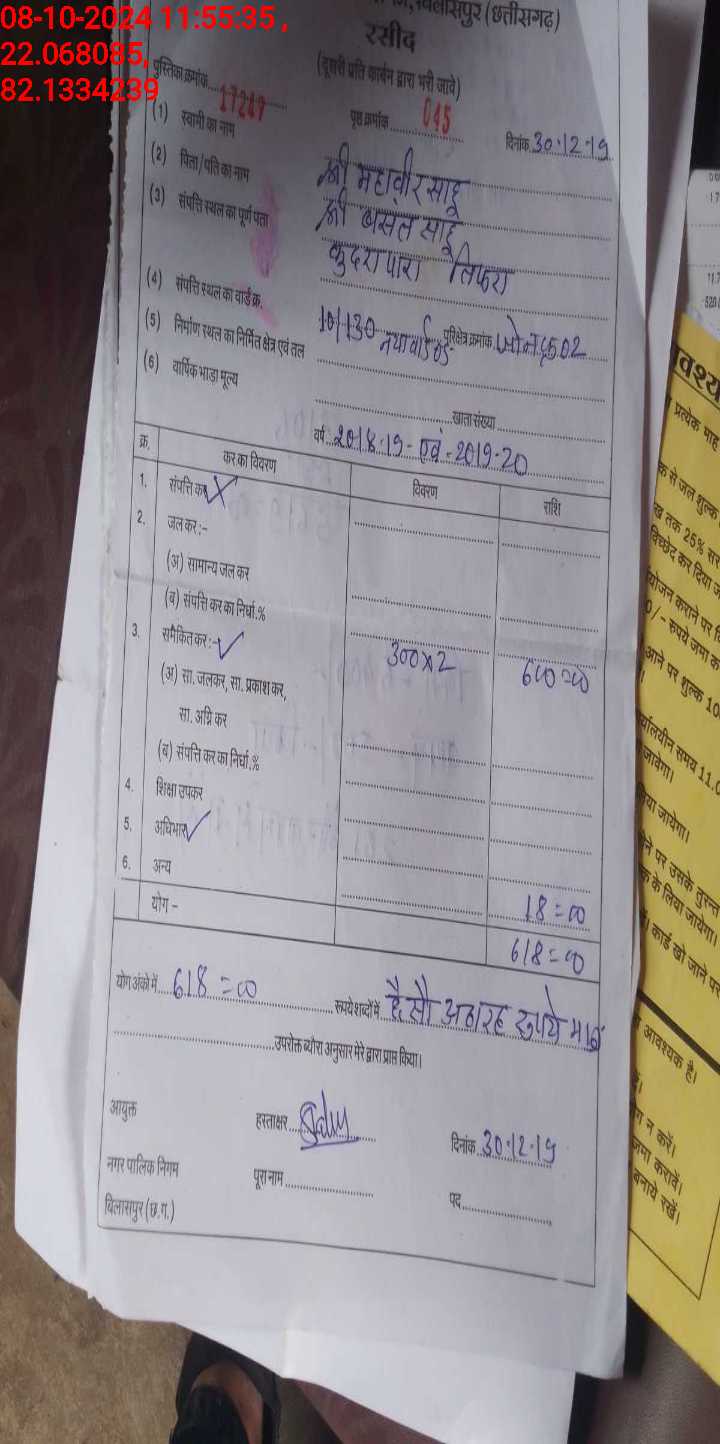 08-10-2024 11:55:35,
22.068085,
82.1334239
बिलासपुर (छत्तीसगढ़)
रसीद
(दूसरी प्रति कार्बन द्वारा भरी जावे)
पुस्तिका क्रमांक 17247 पृष्ठ क्रमांक 045 दिनांक 30.12.19
(1) स्वामी का नाम श्री महावीर साहू
(2) पिता/पति का नाम श्री बसंत साहू
(3) संपत्ति स्थल का पूर्ण पता कुदरापारा तिफरा
(4) संपत्ति स्थल का वार्ड क्र. 10/130 नयावार्ड 05 परिक्षेत्र क्रमांक जोन क्र 02
(5) निर्माण स्थल का निर्मित क्षेत्र एवं तल
(6) वार्षिक भाड़ा मूल्य खाता संख्या
वर्ष 2018-19 - एवं - 2019-20
क्र. कर का विवरण विवरण राशि
1. संपत्ति कर X
2. जल कर :-
(अ) सामान्य जल कर
(ब) संपत्ति कर का निर्धा.%
3. समेकित कर :- ✓ 300x2 600=00
(अ) सा. जलकर, सा. प्रकाश कर,
सा. अग्नि कर
(ब) संपत्ति कर का निर्धा.%
4. शिक्षा उपकर
5. अधिभार ✓
6. अन्य 18=00
योग - 618=00
योग अंको में 618=00 रूपये शब्दों में छै सौ अठारह रुपये मात्र
उपरोक्त ब्यौरा अनुसार मेरे द्वारा प्राप्त किया।
आयुक्त हस्ताक्षर दिनांक 30.12.19
नगर पालिक निगम पूरा नाम पद
बिलासपुर (छ.ग.)
प्रत्येक माह
से जल शुल्क
तक 25%
विच्छेद कर दिया
कराने पर
0/- रूपये जमा
आने पर शुल्क 10
समय 11.0
जावेगा।
जायेगा।
पर उसके तुरन्त
के लिया जायेगा।
कार्ड खो जाने पर
आवश्यक है।
न करें।
जमा करावें।
बनाये रखें।